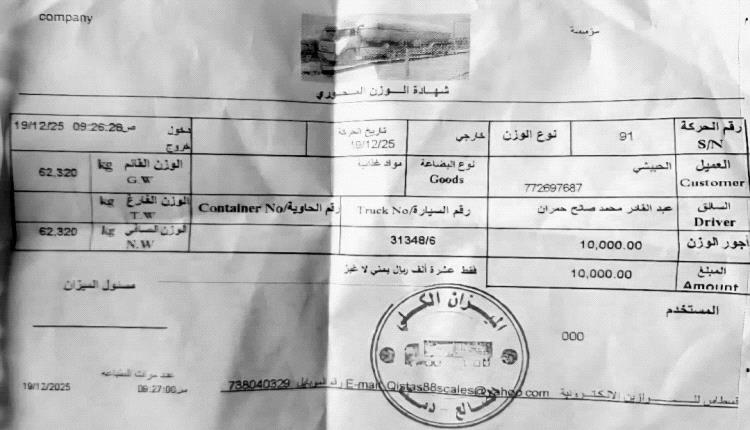 company
مؤسسة
شهادة الوزن المحوري
رقم الحركة S/N 91 نوع الوزن خارجي تاريخ الحركة 19/12/25 دخول 19/12/25 09:26:28 ص
خروج
العميل Customer الحبيشي 772697687 نوع البضاعة Goods مواد غذائية الوزن القائم G.W kg 62.320
السائق Driver عبد القادر محمد صالح حمران رقم السيارة/Truck No رقم الحاوية/Container No الوزن الفارغ T.W kg
أجور الوزن 10,000.00 31348/6 الوزن الصافي N.W kg 62.320
المبلغ Amount 10,000.00 فقط عشرة ألف ريال يمني لا غير
المستخدم
000
مسئول الميزان
الميزان الكلي
عدد مرات الطباعه
19/12/2025 09:27:06 ص
قسطاس للموازين الالكترونية E-mail: Qistas88scales@yahoo.com رقم الموبايل 738040329